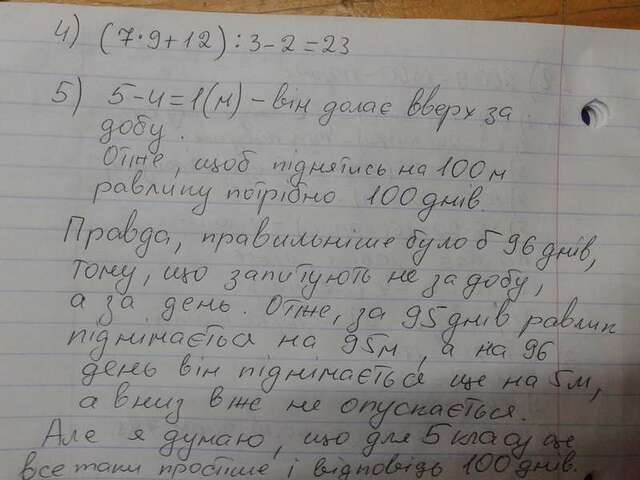 4) (7•9+12):3-2=23
5) 5-4=1(м) - він долає вверх за
добу.
Отже, щоб піднятись на 100м
равлику потрібно 100 днів.
Правда, правильніше було б 96 днів,
тому, що запитують не за добу,
а за день. Отже, за 95 днів равлик
піднімається на 95м, а на 96
день він піднімається ще на 5м,
а вниз вже не опускається.
Але я думаю, що для 5 класу це
все таки простіше і відповідь 100 днів.